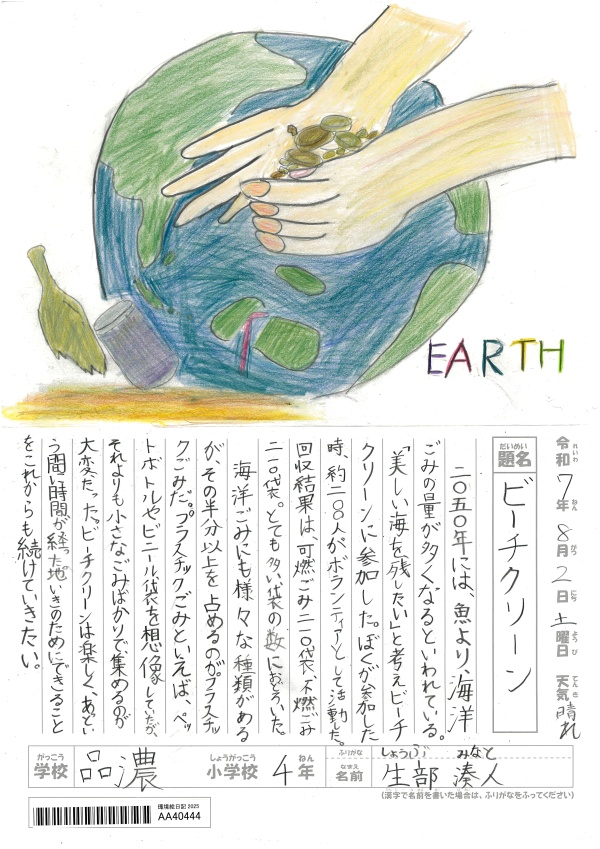 EARTH
令和7年8月2日土曜日 天気晴れ
れいわ ねん がつ にち ようび てんき
だいめい
題名 ビーチクリーン
二〇五〇年には、魚より、海洋
ごみの量が多くなるといわれている。
「美しい海を残したい」と考えビーチ
クリーンに参加した。ぼくが参加した
時、約二〇〇人がボランティアとして活動した。
回収結果は、可燃ごみ二一〇袋、不燃ごみ
二一〇袋。とても多い袋の数におどろいた。
海洋ごみにも様々な種類がある
が、その半分以上を占めるのがプラスチッ
クごみだ。プラスチックごみといえば、ペッ
トボトルやビニール袋を想像していたが、
それよりも小さなごみばかりで集めるのが
大変だった。ビーチクリーンは楽しく、あとい
う間い時間が経った地いきのためにできること
をこれからも続けていきたい。
がっこう しょうがっこう ねん ふりがな しょうぶ みなと
学校 品濃 小学校 4年 なまえ 名前 生部 湊人
(漢字で名前を書いた場合は、ふりがなをふってください)
環境絵日記 2025
AA40444